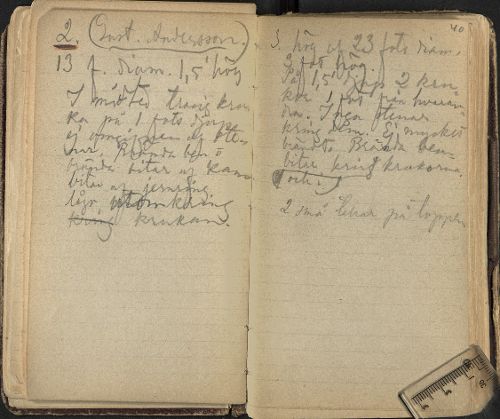 2. (Gust. Andersson.)
13 f. diam. 1,5' hög
I midten trasig kru-
ka på 1 fots djup
ej omgifven af ste-
nar. Brända ben o
brända bitar af kam
bitar af jernring
låg utomkring
kring krukan.
40
3. hög af 23 fots diam.
2 fot hög.
På 1,5' djup 2 kru-
kor 1 fot från hvaran-
dra. Inga stenar
kring dem. Ej mycket
brändt. Brända ben-
bitar kring krukorna
(och)
2 små på toppen